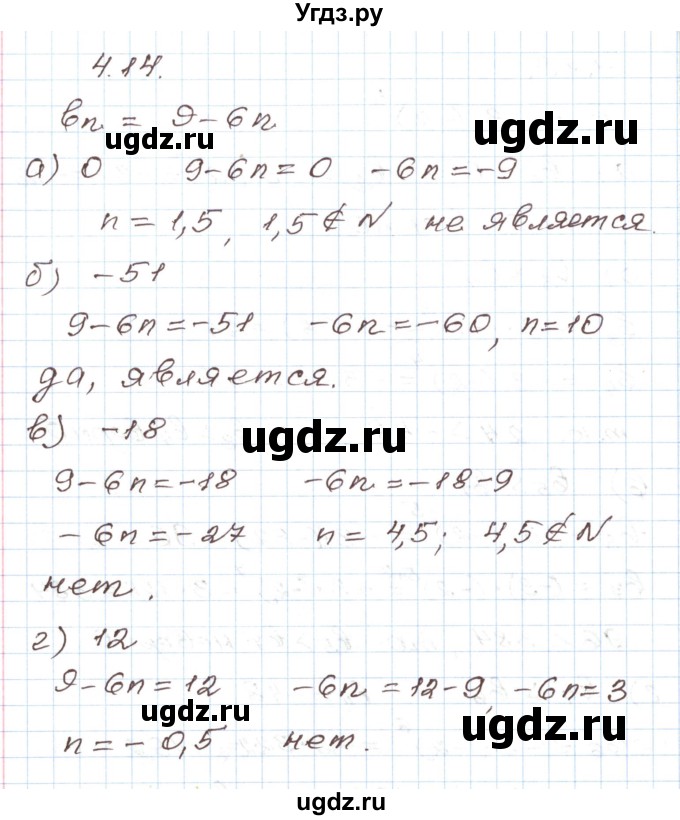 Угдз.ру
4.14.
bn = 9-6n
ugdz.ru ugdz.ru
а) 0 9-6n=0 -6n=-9
n=1,5, 1,5∉N не является.
б) -51
9-6n=-51 -6n=-60, n=10
да, является.
в) -18
ugdz.ru
9-6n=-18 -6n=-18-9
-6n=-27 n=4,5; 4,5∉N
нет.
г) 12
9-6n=12 -6n=12-9, -6n=3
ugdz.ru ugdz.ru
n=-0,5 нет.
ugdz.ru